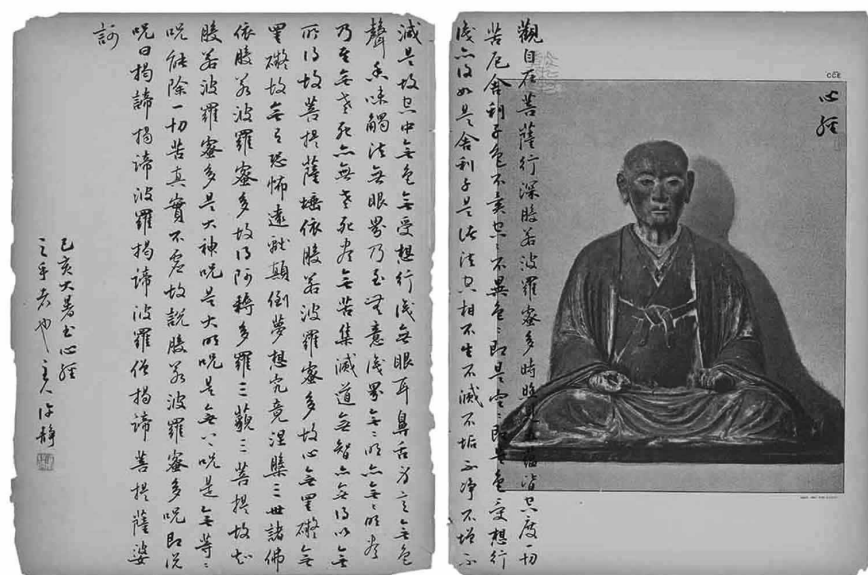 心經
觀自在菩薩行深般若波羅蜜多時照見五蘊皆空度一切
苦厄舍利子色不異空〻不異色〻即是空〻即是色受想行
識亦復如是舍利子是諸法空相不生不滅不垢不淨不增不
減是故空中無色無受想行識無眼耳鼻舌身意無色
聲香味觸法無眼界乃至無意識界無〻明亦無〻明盡
乃至無老死亦無老死盡無苦集滅道無智亦無得以無
所得故菩提薩埵依般若波羅蜜多故心無罣礙無
罣礙故無有恐怖遠離顛倒夢想究竟涅槃三世諸佛
依般若波羅蜜多故得阿耨多羅三藐三菩提故知
般若波羅蜜多是大神呪是大明呪是無上呪是無等〻
呪能除一切苦真實不虛故說般若波羅蜜多呪即說
呪曰揭諦揭諦波羅揭諦波羅僧揭諦菩提薩婆
訶
己亥大暑書心經
之乎者也主人許靜